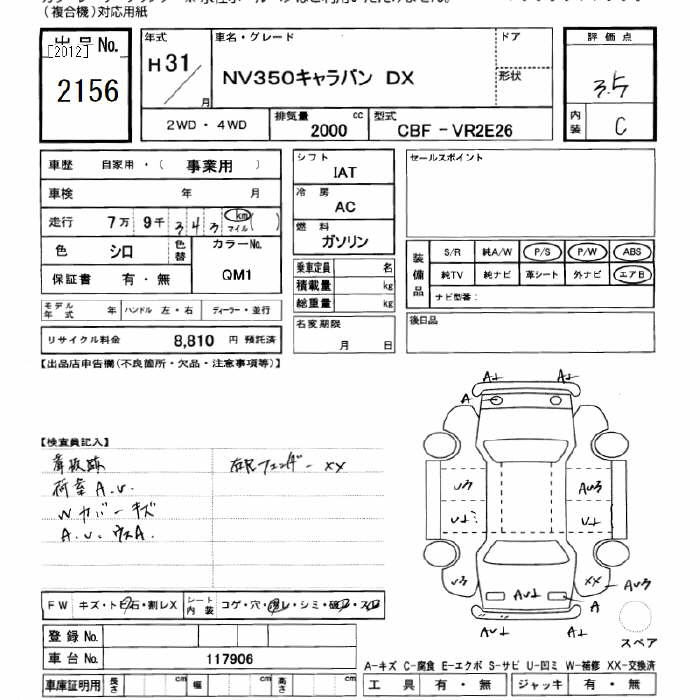 （複合機）対応用紙
出品No.
[2012]
2156
年式
H31
月
車名・グレード
NV350キャラバン DX
ドア
形状
評価点
3.5
内装
C
2WD・4WD
排気量 2000 cc
型式 CBF－VR2E26
車歴 自家用・（ 事業用 ）
車検 年 月
走行 7万 9千 3 4 3 km マイル ( )
色 シロ 色替 カラーNo. QM1
保証書 有・無
モデル年式 年 ハンドル 左・右 ディーラー・並行
リサイクル料金 8,810 円 預託済
シフト
IAT
冷房
AC
燃料
ガソリン
乗車定員 名
積載量 kg
総重量 kg
名変期限
月 日
セールスポイント
装備品
S/R 純A/W P/S P/W ABS
純TV 純ナビ 革シート 外ナビ エアB
ナビ型番：
後日品
【出品店申告欄(不良箇所・欠品・注意事項等)】
【検査員記入】
看板跡
荷室 A.U.
Wカバーキズ
右Rフェンダー XX
FW キズ・トビ石・割レX シート内装 コゲ・穴・スレ・シミ
登録No.
車台No. 117906
車庫証明用 長さ cm 幅 cm 高さ cm
スペア
A-キズ C-腐食 E-エクボ S-サビ U-凹ミ W-補修 XX-交換済
工具 有・無 ジャッキ 有・無